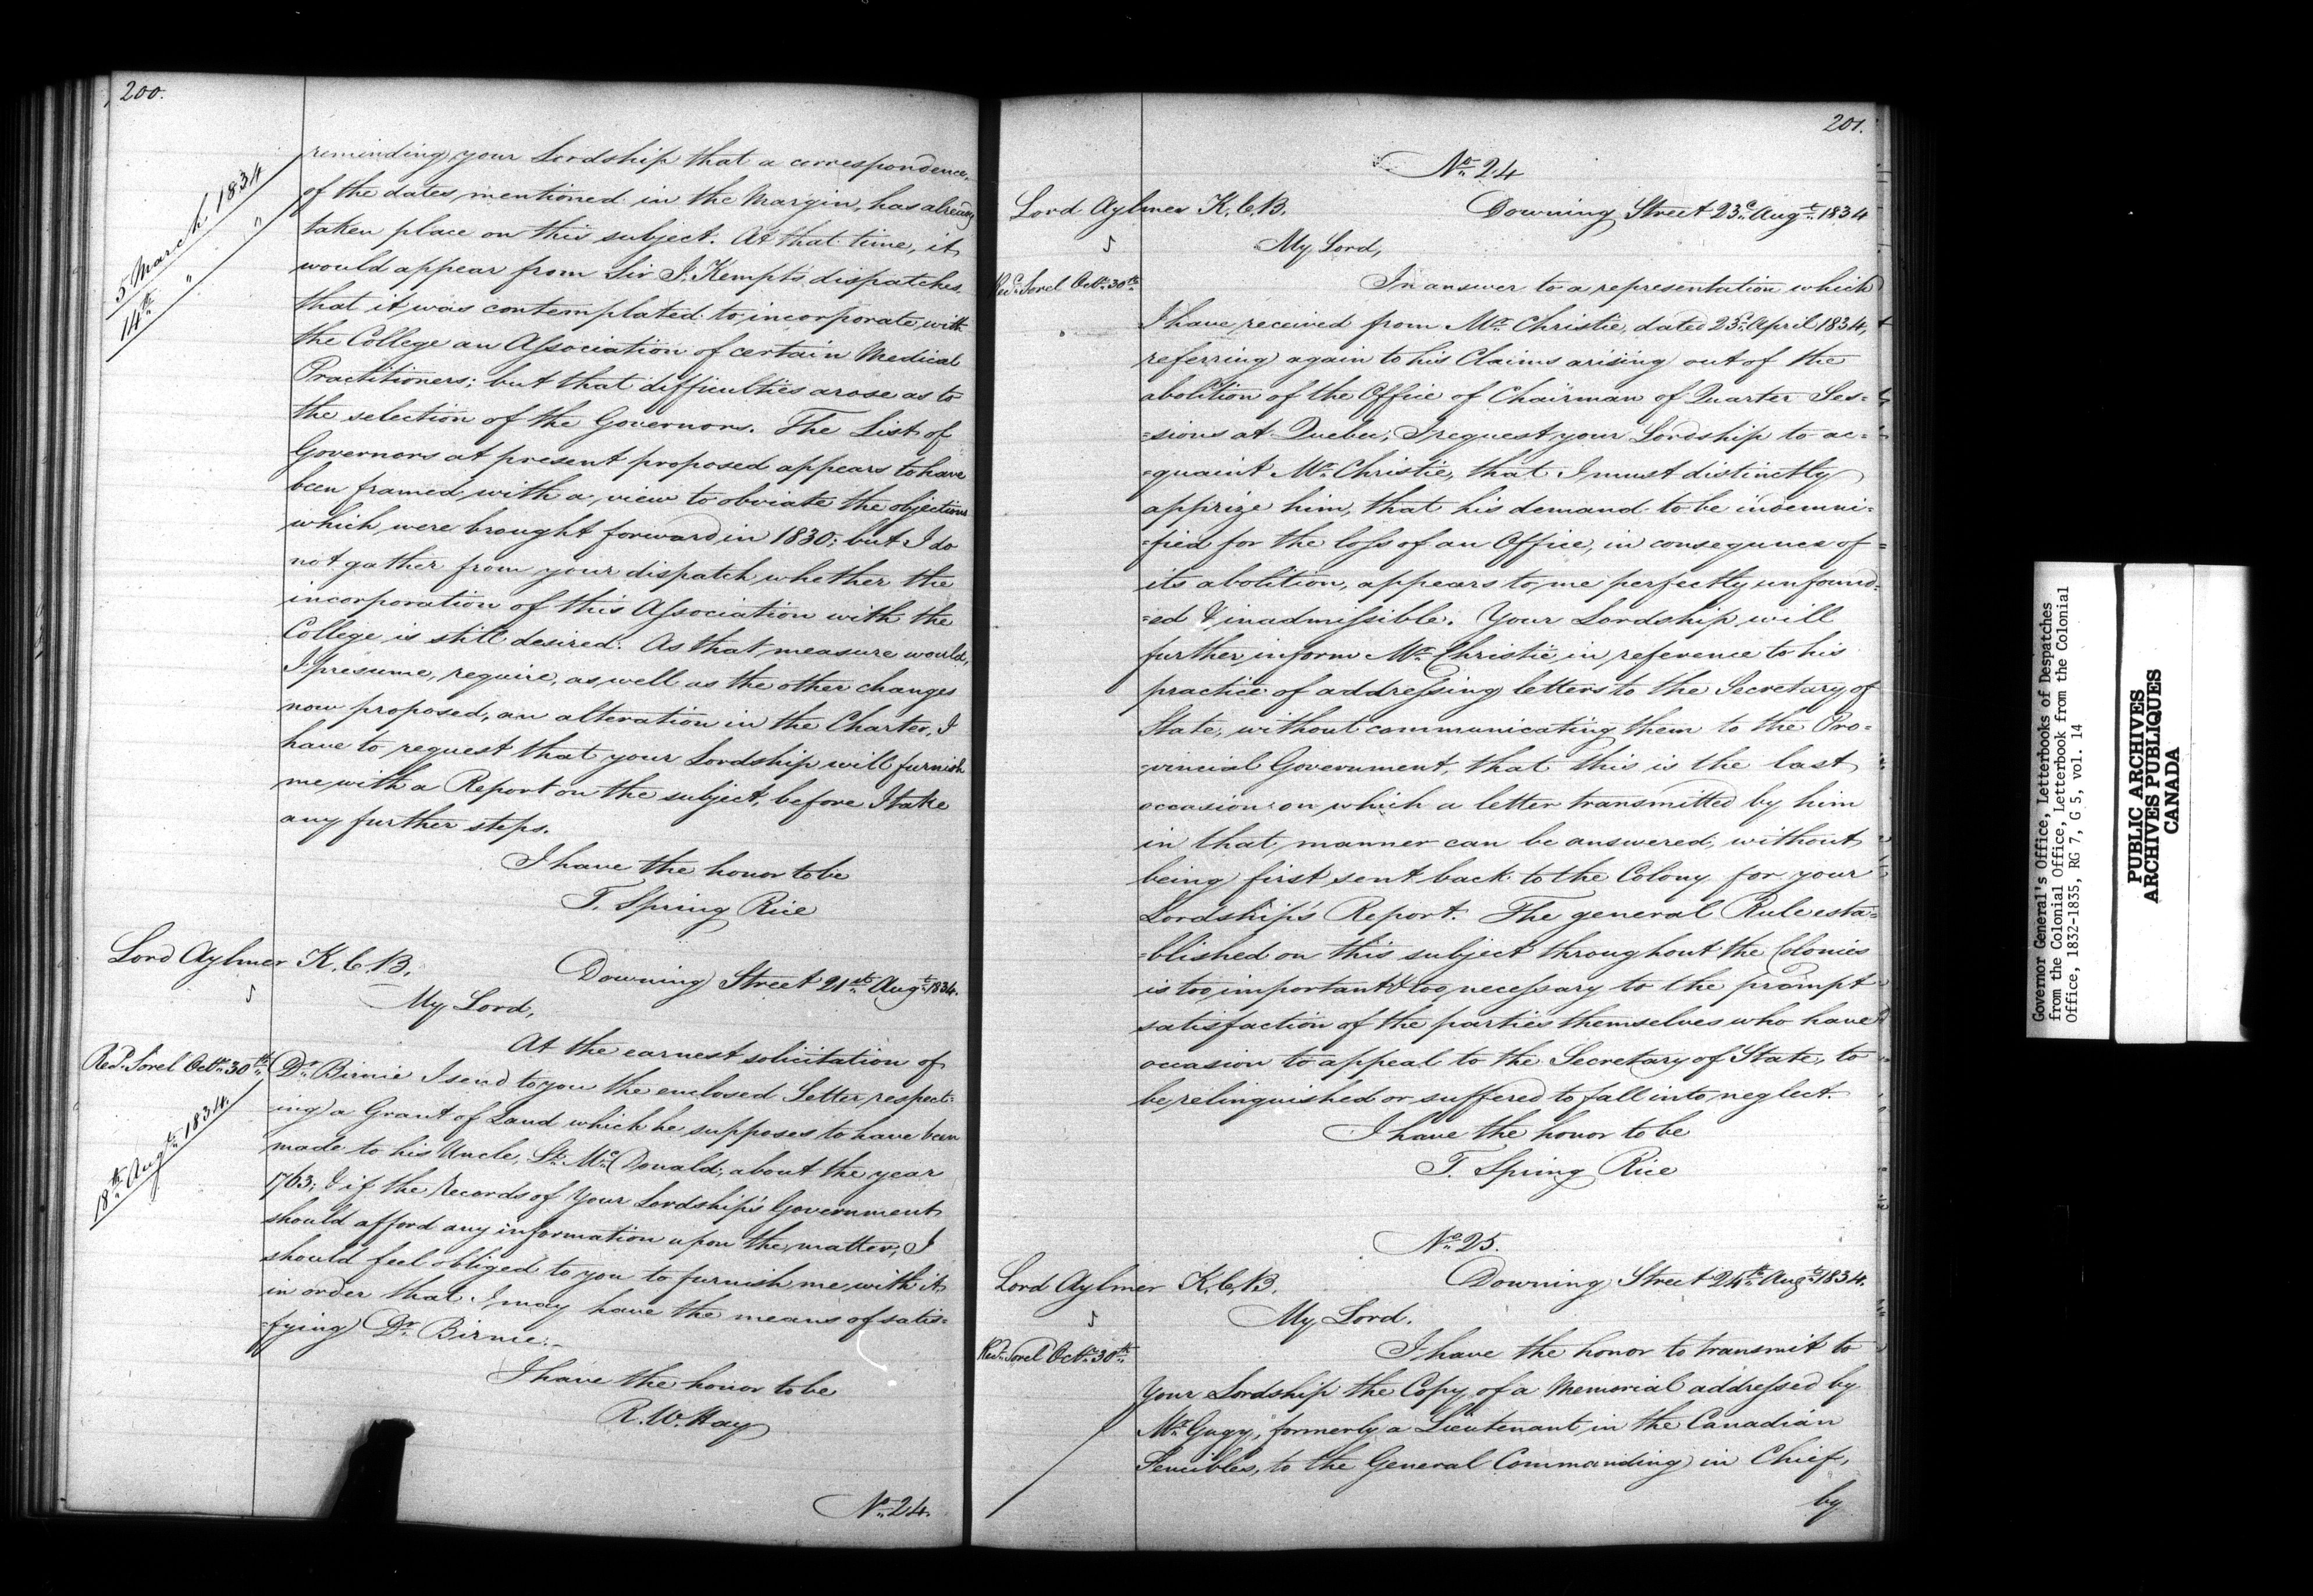 200.
5 March 1834
14th " "
reminding your Lordship that a correspondence,
of the dates mentioned in the Margin, has already
taken place on this subject. At that time, it
would appear from Sir J. Kempt's dispatches,
that it was contemplated to incorporate with
the College an Association of certain Medical
Practitioners; but that difficulties arose as to
the selection of the Governors. The List of
Governors at present proposed appears to have
been framed with a view to obviate the objections
which were brought forward in 1830; but I do
not gather from your dispatch whether the
incorporation of this Association with the
College is still desired. As that measure would,
I presume, require, as well as the other changes
now proposed, an alteration in the Charter, I
have to request that your Lordship will furnish
me with a Report on the subject, before I take
any further steps.
I have the honor to be
T. Spring Rice
Lord Aylmer K.C.B.
Downing Street 21st Augt. 1834.
My Lord,
Recd. Sorel Octr. 30th
18th Augt. 1834.
At the earnest solicitation of
Dr. Birnie I send to you the enclosed Letter respect-
ing a Grant of Land which he supposes to have been
made to his Uncle, Lt. McDonald, about the year
1763; & if the records of Your Lordship's Government
should afford any information upon the matter, I
should feel obliged to you to furnish me with it
in order that I may have the means of satis=
=fying Dr. Birnie.
I have the honor to be
R. W. Hay
No. 24.
201.
No. 24
Lord Aylmer K.C.B.
Downing Street 23d. Augt. 1834
My Lord,
Recd. Sorel Octr. 30th
In answer to a representation which
I have received from Mr. Christie, dated 23d. April 1834,
referring again to his Claims arising out of the
abolition of the Office of Chairman of Quarter Ses=
=sions at Quebec, I request your Lordship to ac=
=quaint Mr. Christie, that I must distinctly
apprize him, that his demand to be indemni=
=fied for the loss of an Office, in consequence of
its abolition, appears to me perfectly unfound=
=ed & inadmissible. Your Lordship will
further inform Mr. Christie in reference to his
practice of addressing letters to the Secretary of
State, without communicating them to the Pro=
=vincial Government, that this is the last
occasion on which a letter transmitted by him
in that manner can be answered, without
being first sent back to the Colony for your
Lordship's Report. The general Rule esta=
=blished on this subject throughout the Colonies
is too important & too necessary to the prompt
satisfaction of the parties themselves who have
occasion to appeal to the Secretary of State, to
be relinquished or suffered to fall into neglect.
I have the honor to be
T. Spring Rice
No. 25.
Lord Aylmer K.C.B.
Downing Street 24th Augt. 1834.
My Lord.
Recd. Sorel Octr. 30th
I have the honor to transmit to
Your Lordship the Copy of a Memorial addressed by
Mr. Gugy, formerly a Lieutenant in the Canadian
Fencibles, to the General Commanding in Chief,
by
Governor General's Office, Letterbooks of Despatches
from the Colonial Office, Letterbook from the Colonial
Office, 1832-1835, RG 7, G 5, vol. 14
PUBLIC ARCHIVES
ARCHIVES PUBLIQUES
CANADA